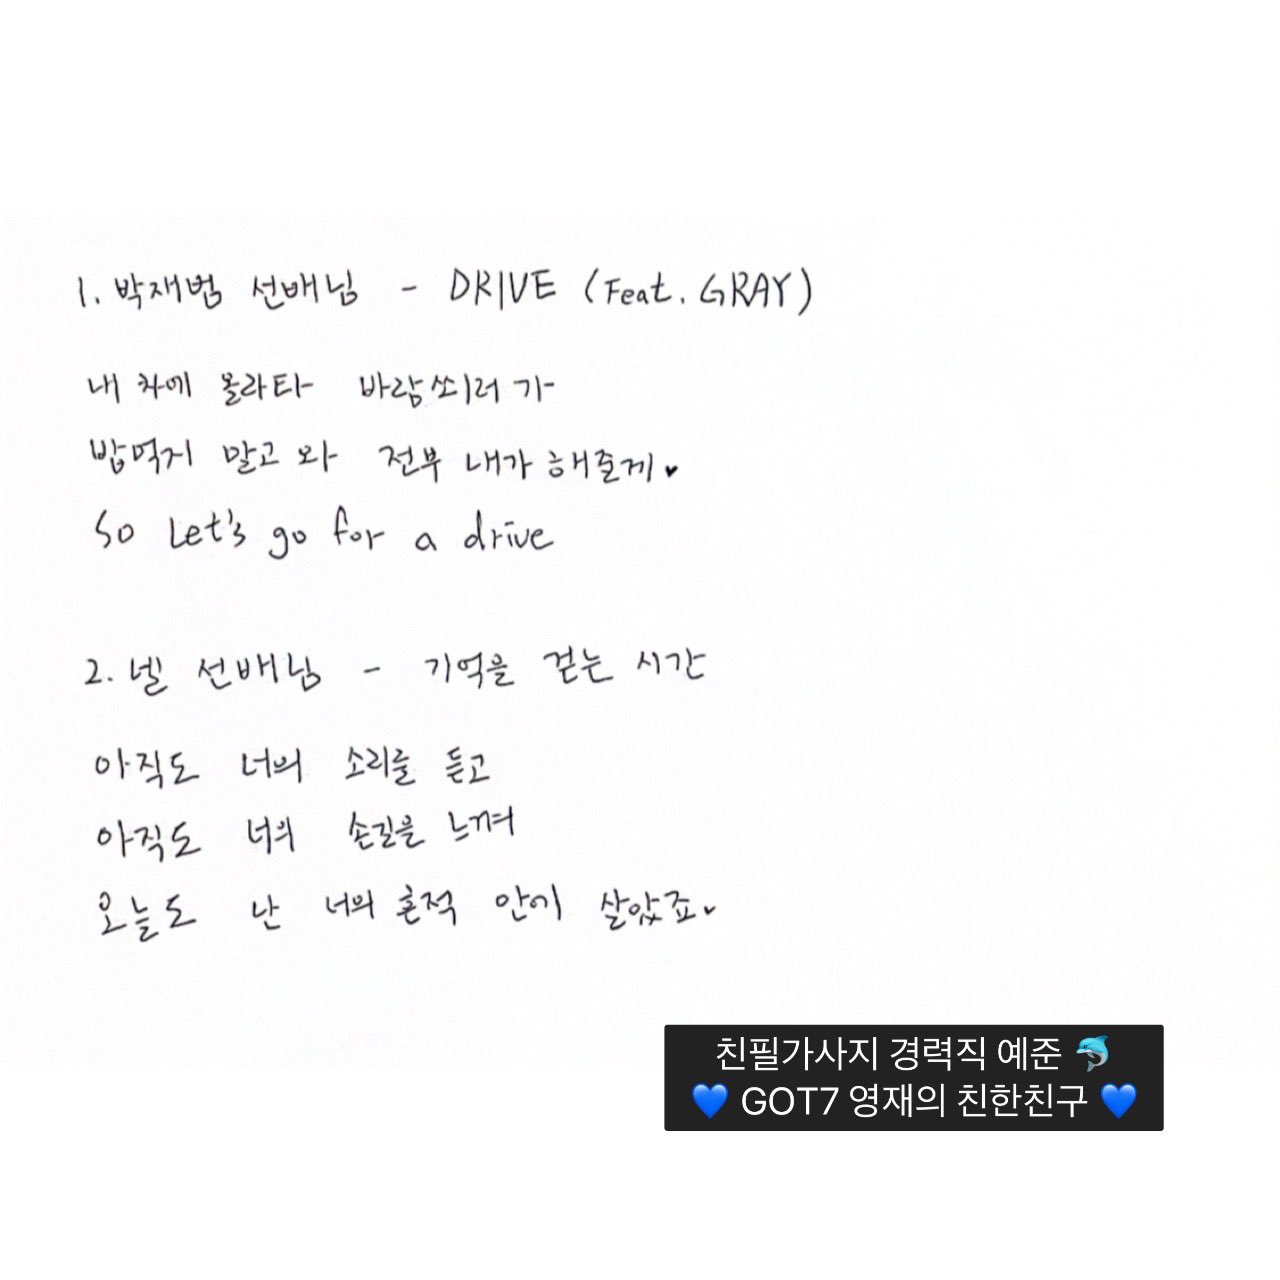 1. 박재범 선배님 - DRIVE (Feat. GRAY)
내 차에 올라타 바람쐬러 가
밥먹지 말고 와 전부 내가 해줄게♥
So Let's go for a drive
2. 넬 선배님 - 기억을 걷는 시간
아직도 너의 소리를 듣고
아직도 너의 손길을 느껴
오늘도 난 너의 흔적 안에 살았죠♥
친필가사지 경력직 예준 🐬
💙 GOT7 영재의 친한친구 💙